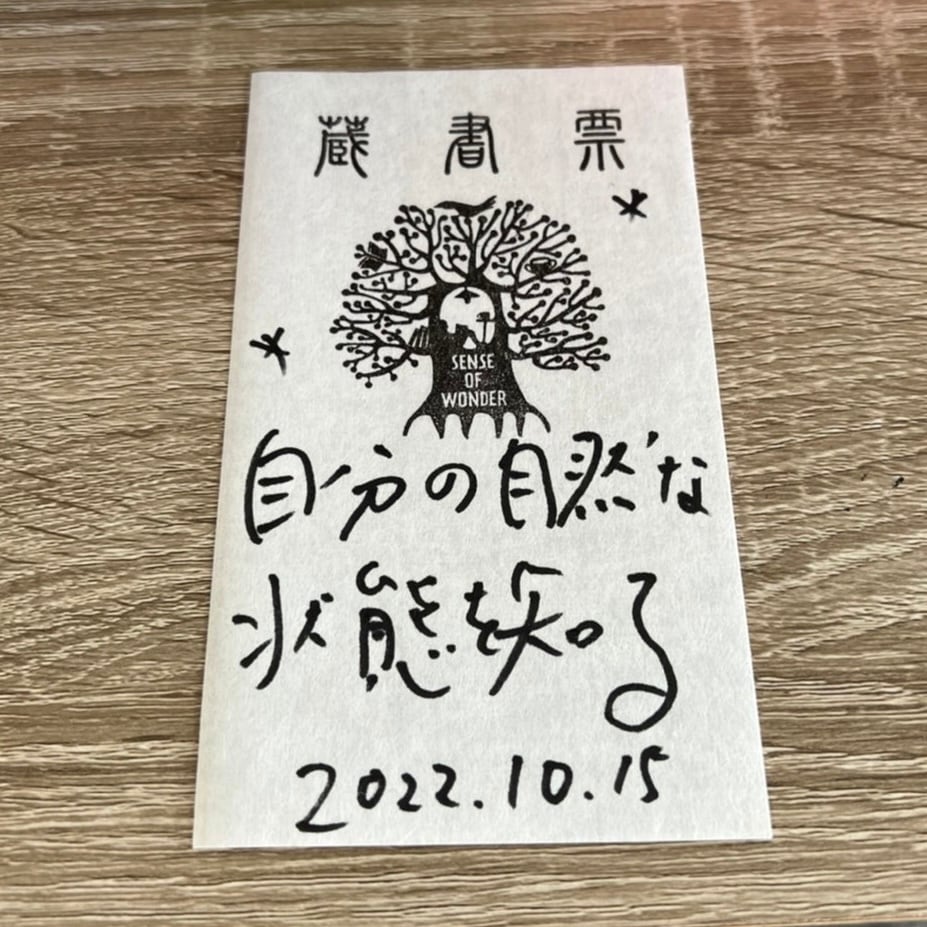 蔵書票
SENSE
OF
WONDER
自分の自然な
状態を知る
2022.10.15